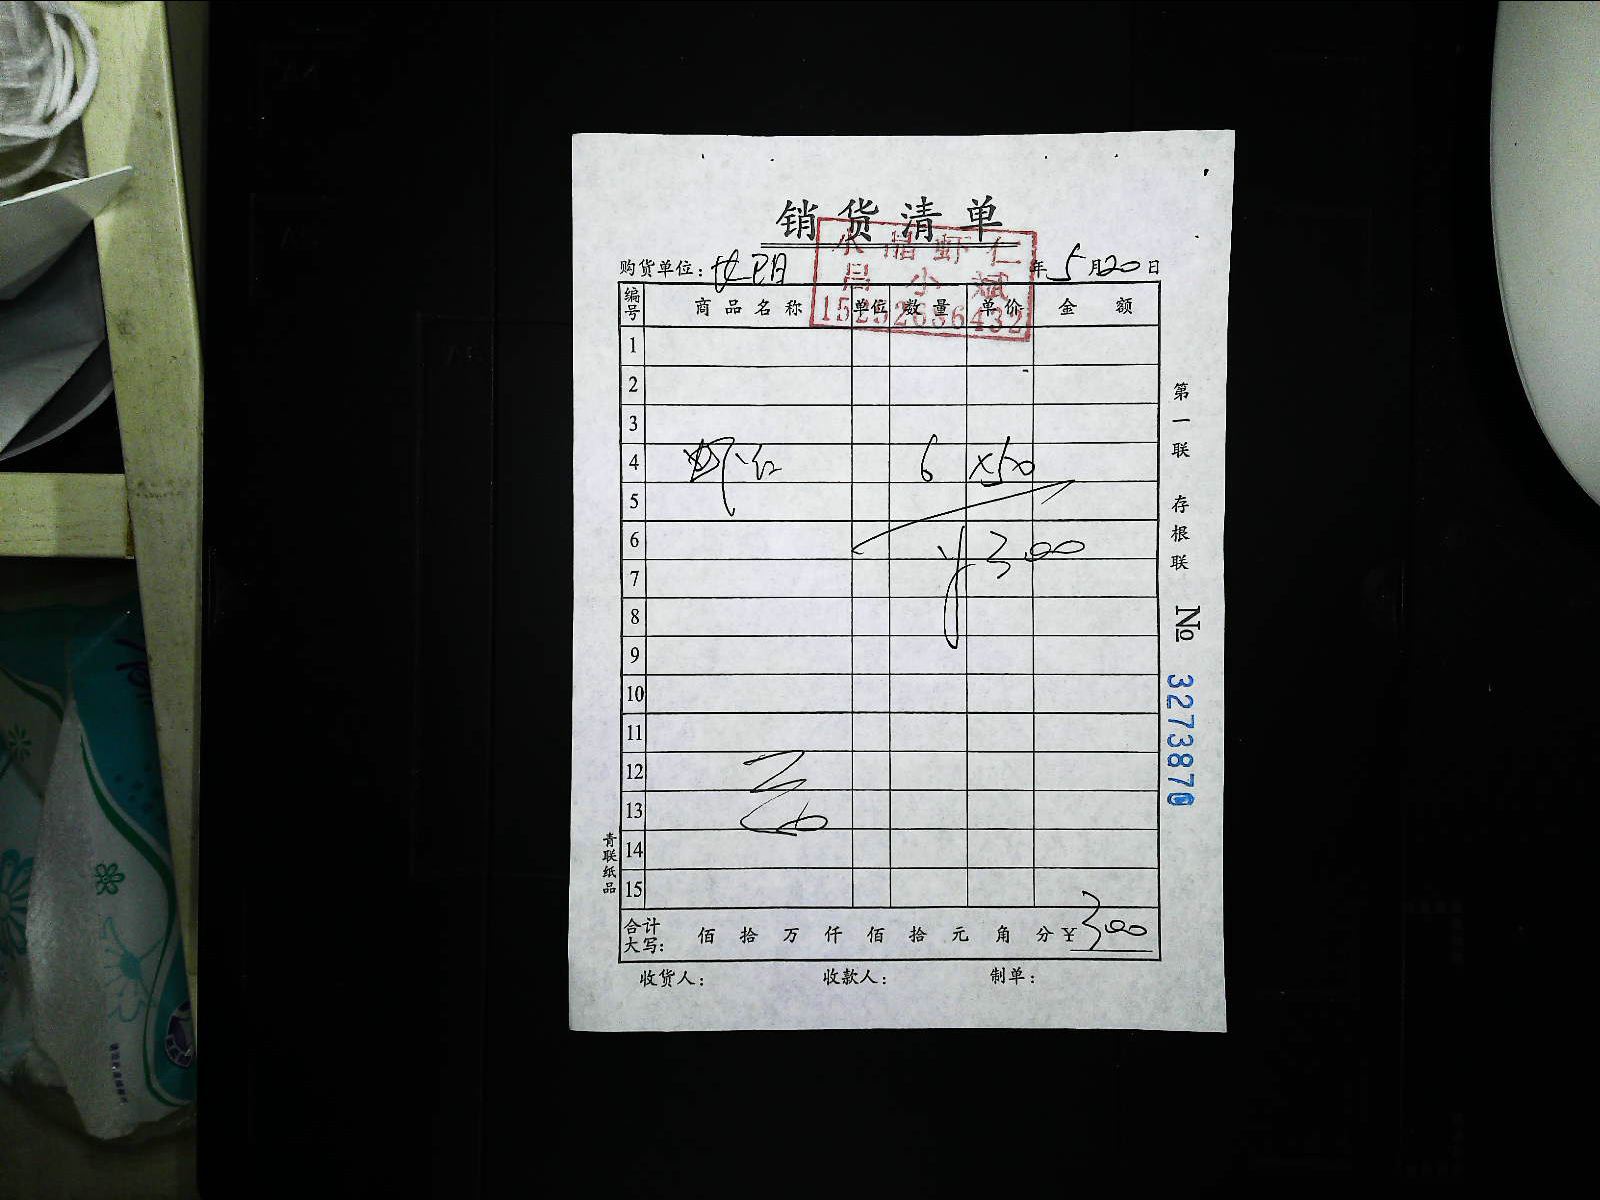 销货清单
水晶虾仁
吕小斌
15252636432
购货单位: 年5月20日
编号 商品名称 单位 数量 单价 金额
1
2
3
4 虾仁 6 x50
5
6 ¥300
7
8
9
10
11
12
13
14
15
合计大写: 佰 拾 万 仟 佰 拾 元 角 分 ¥300
收货人: 收款人: 制单:
第一联 存根联 № 3273870
青联纸品